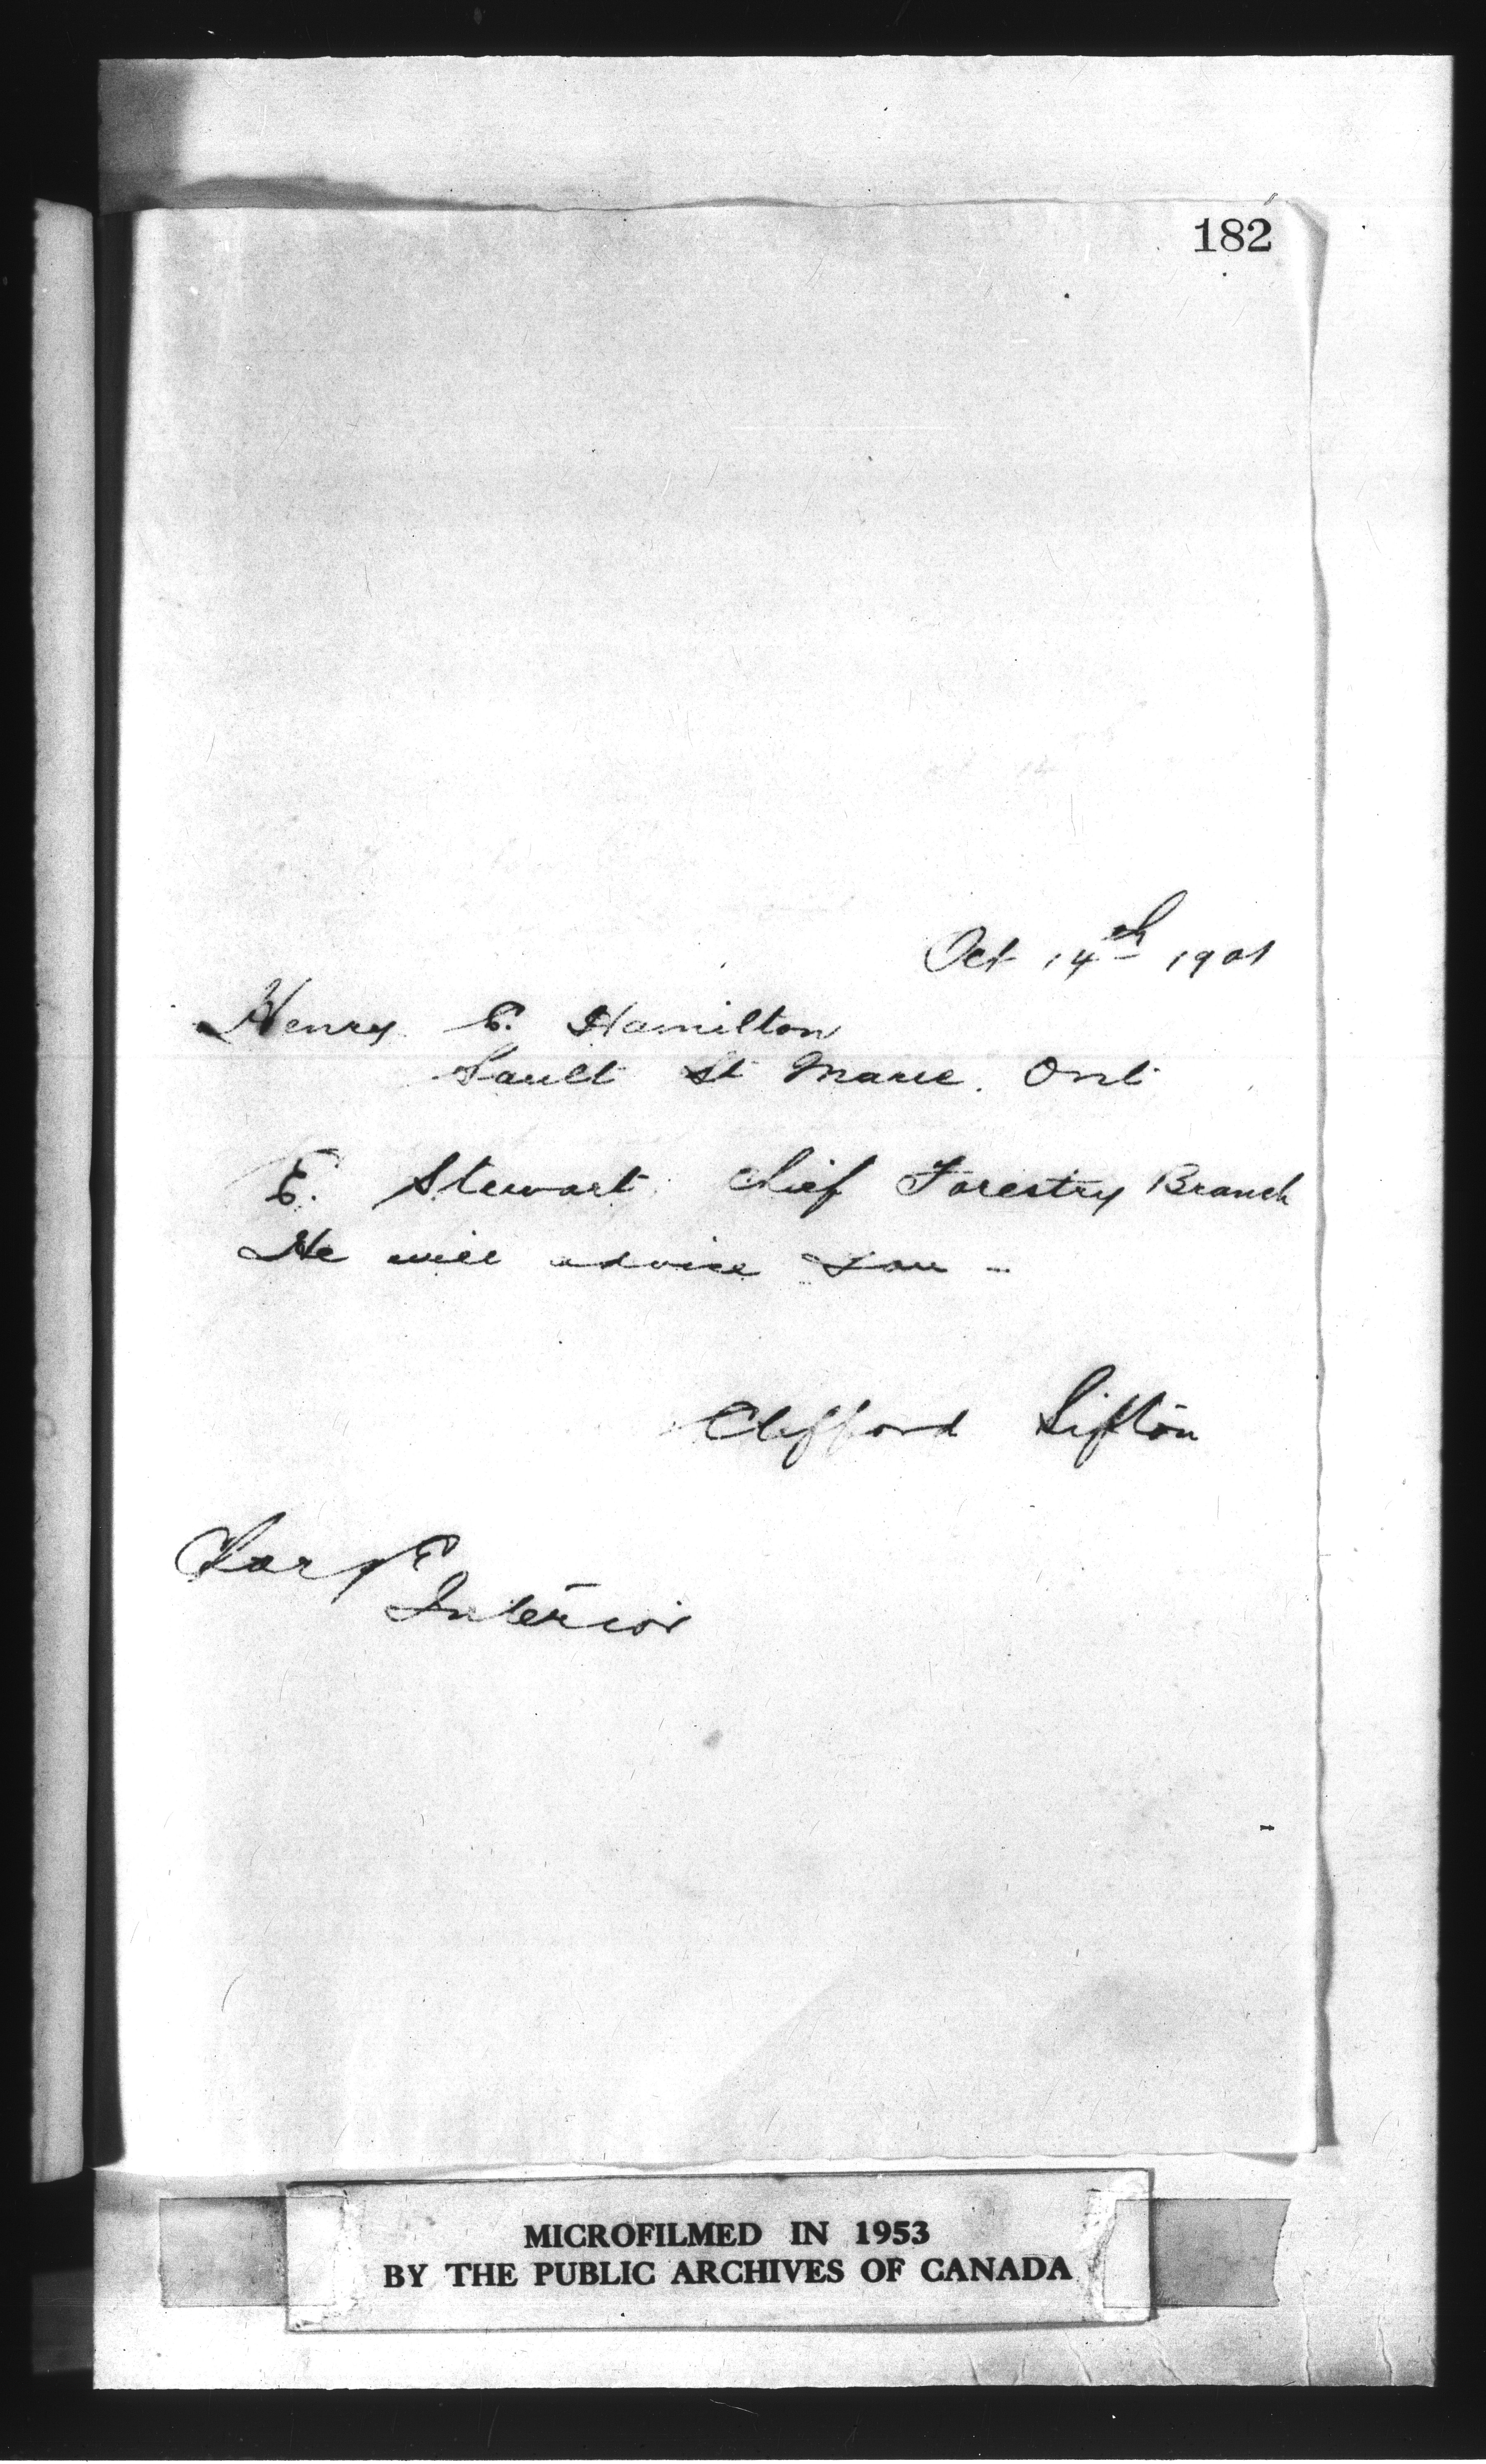 182
Oct 14th 1901
Henry E. Hamilton
Sault St Marie. Ont
E. Stewart, Chief Forestry Branch
He will advise you -
Clifford Sifton
Interior
MICROFILMED IN 1953
BY THE PUBLIC ARCHIVES OF CANADA